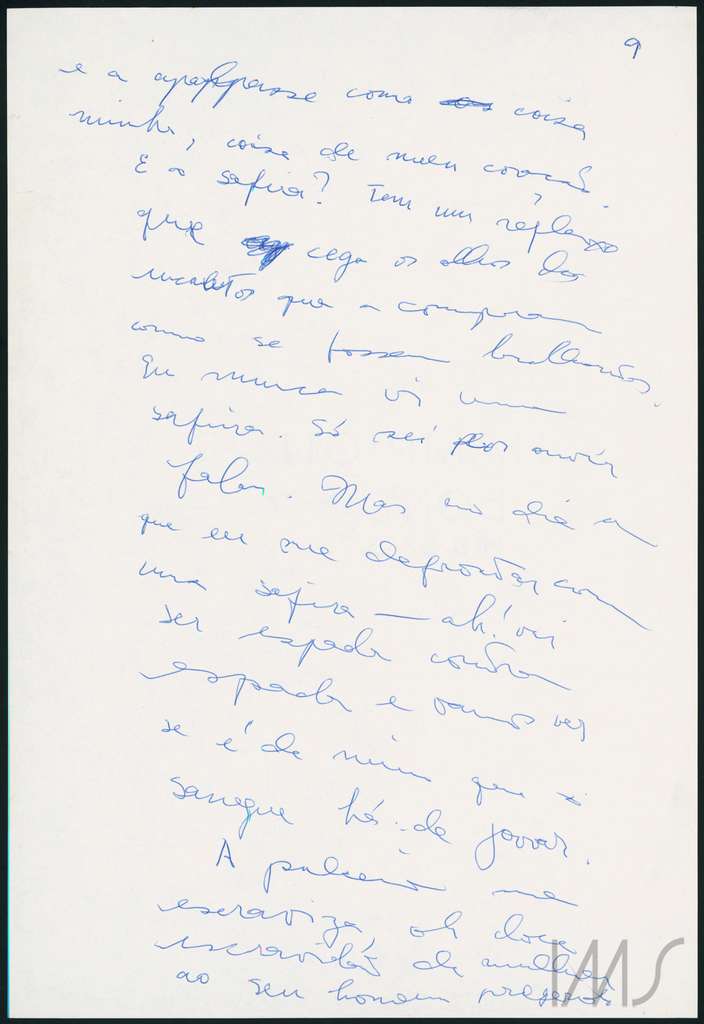 9
e a apalpasse como coisa
minha, coisa de meu coração.
E a safira? Tem um reflexo
que cega os olhos dos
incautos que a compram
como se fossem brilhantes.
Eu nunca vi uma
safira. Só sei por ouvir
falar. Mas no dia em
que eu me defrontar com
uma safira — ah! vai
ser espada contra
espada e vamos ver
se é de mim que o
sangue há-de jorrar.
A pulseira me
escraviza, oh doce
escravidão de mulher
ao seu homem
IMS